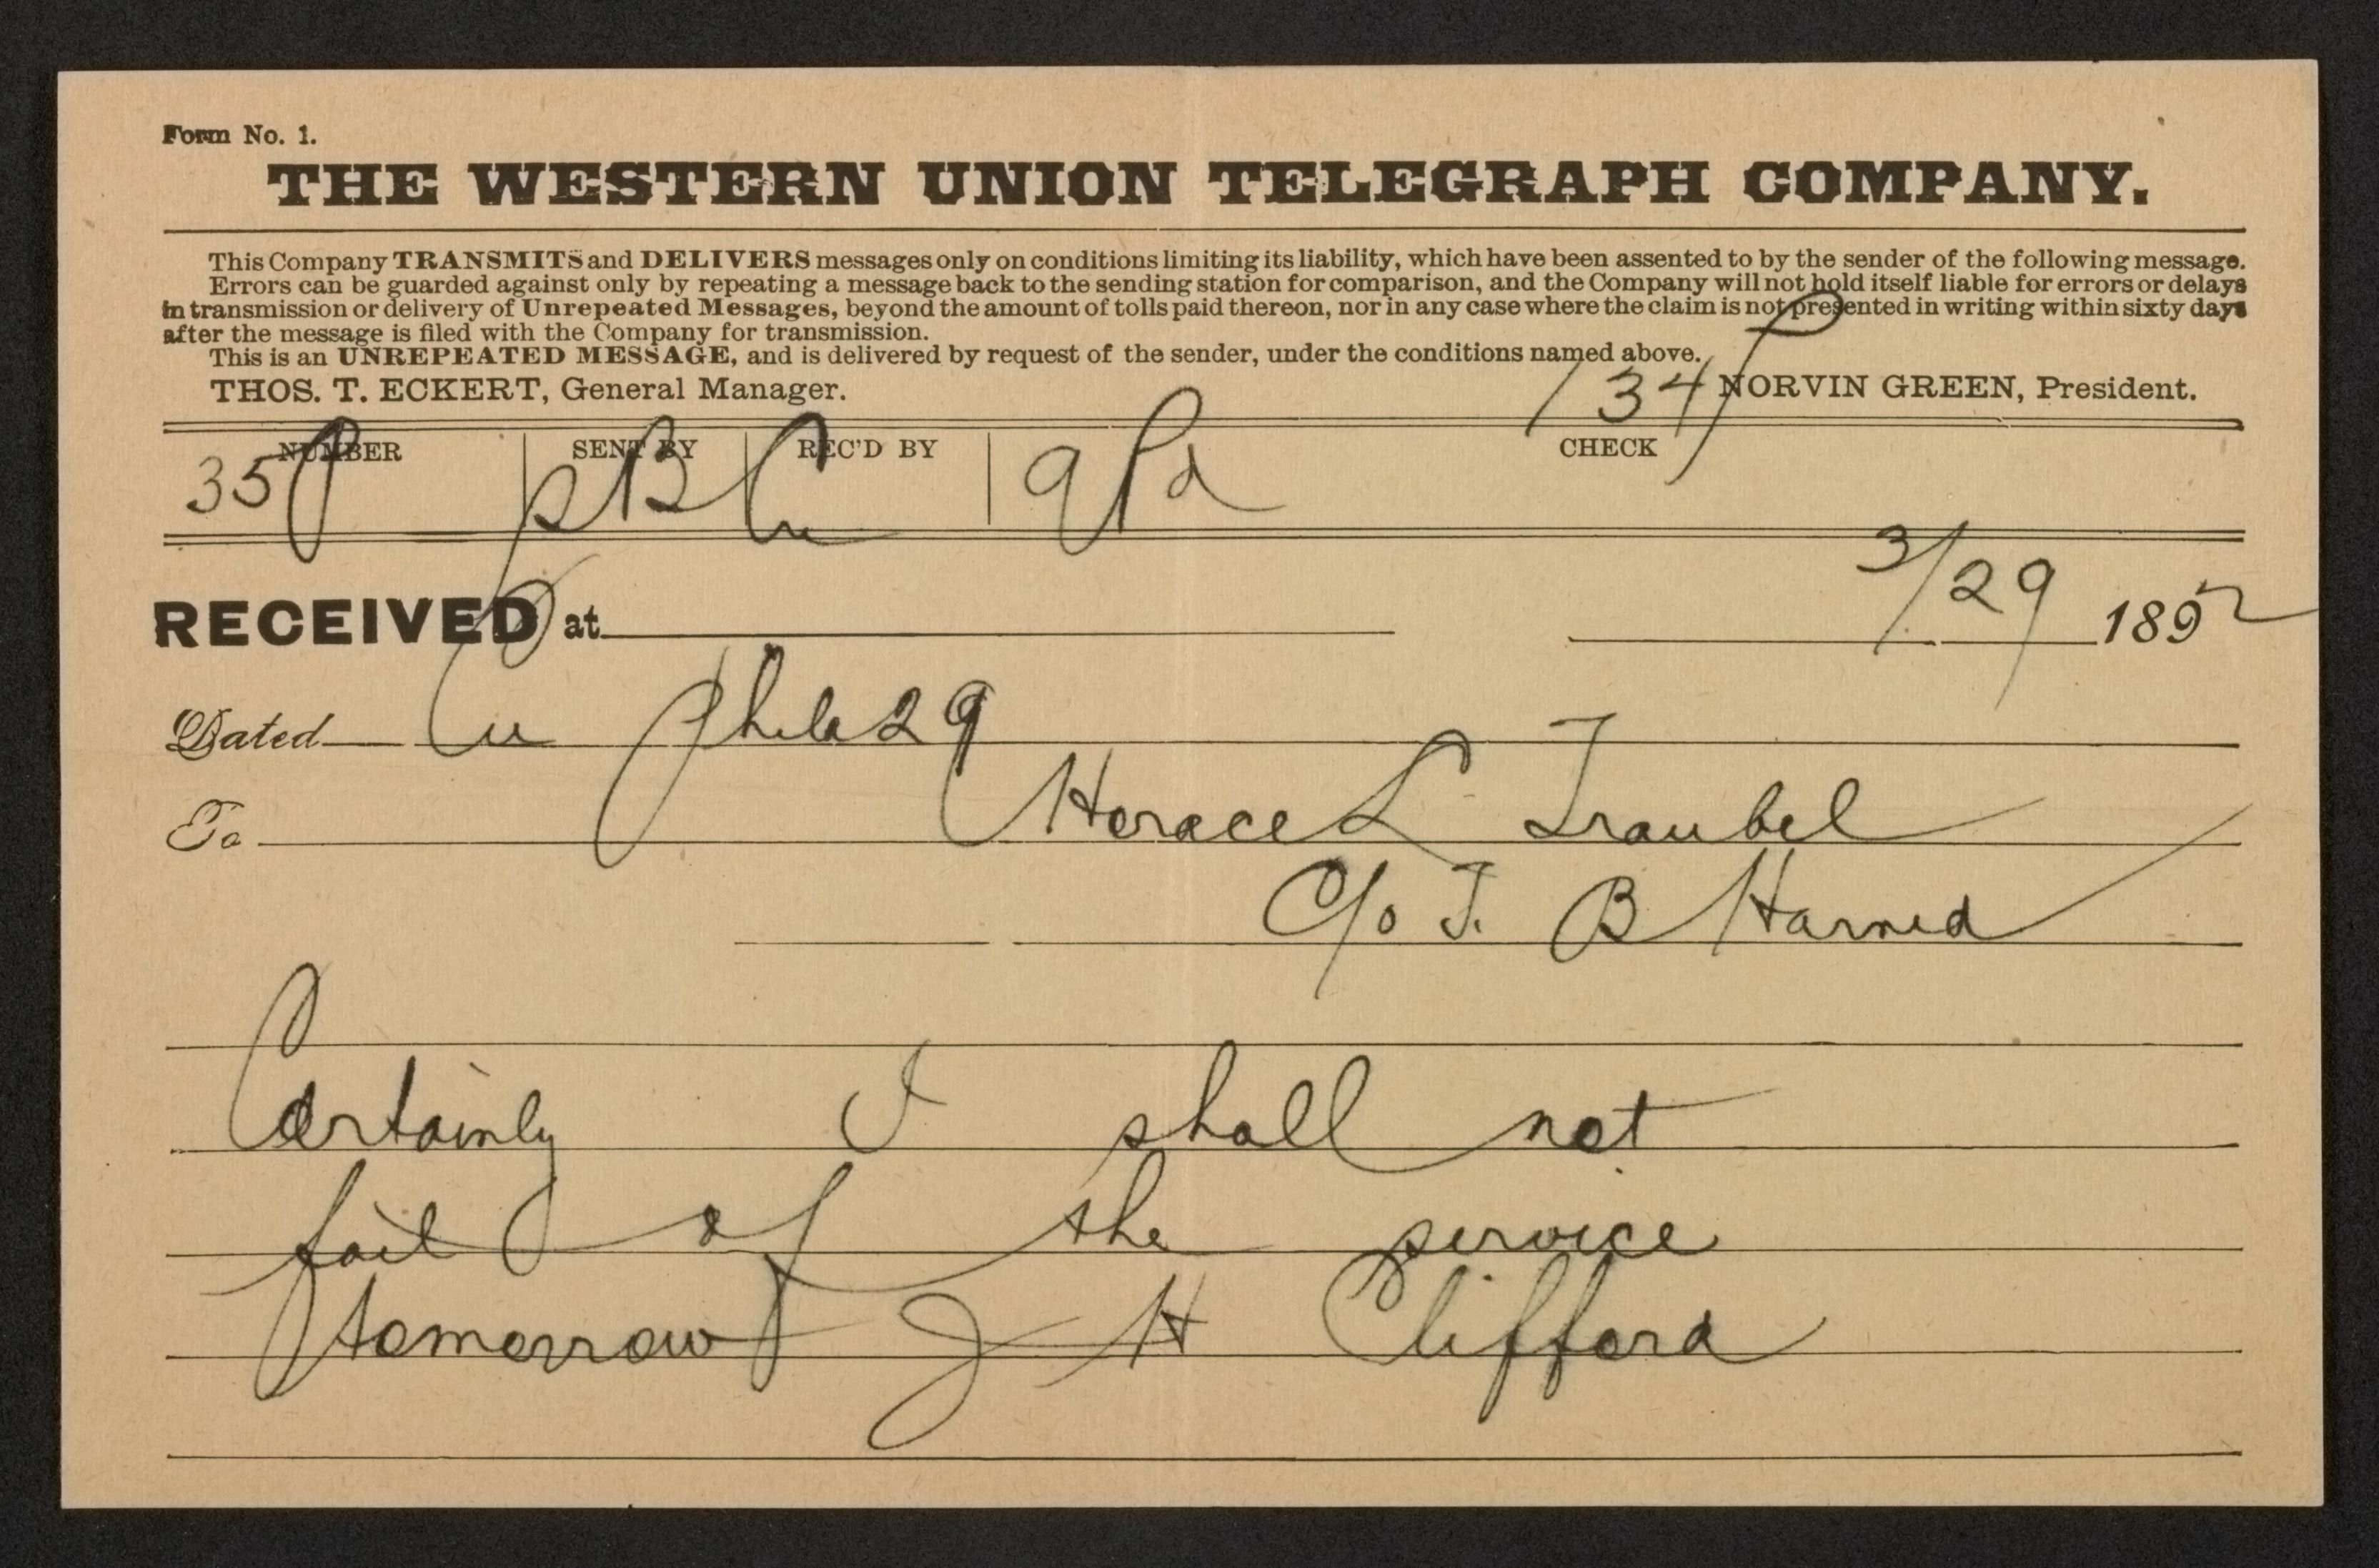 Form No. 1.
THE WESTERN UNION TELEGRAPH COMPANY.
This Company TRANSMITS and DELIVERS messages only on conditions limiting its liability, which have been assented to by the sender of the following message.
Errors can be guarded against only by repeating a message back to the sending station for comparison, and the Company will not hold itself liable for errors or delays
in transmission or delivery of Unrepeated Messages, beyond the amount of tolls paid thereon, nor in any case where the claim is not presented in writing within sixty days
after the message is filed with the Company for transmission.
This is an UNREPEATED MESSAGE, and is delivered by request of the sender, under the conditions named above.
THOS. T. ECKERT, General Manager. NORVIN GREEN, President.
134P
NUMBER SENT BY REC'D BY CHECK
35P SB 9 Pd
RECEIVED at 3/29 1892
Dated Phila 29
To Horace L Traubel
C/o T. B Harned
Certainly I shall not
fail of the service
tomorrow J H Clifford